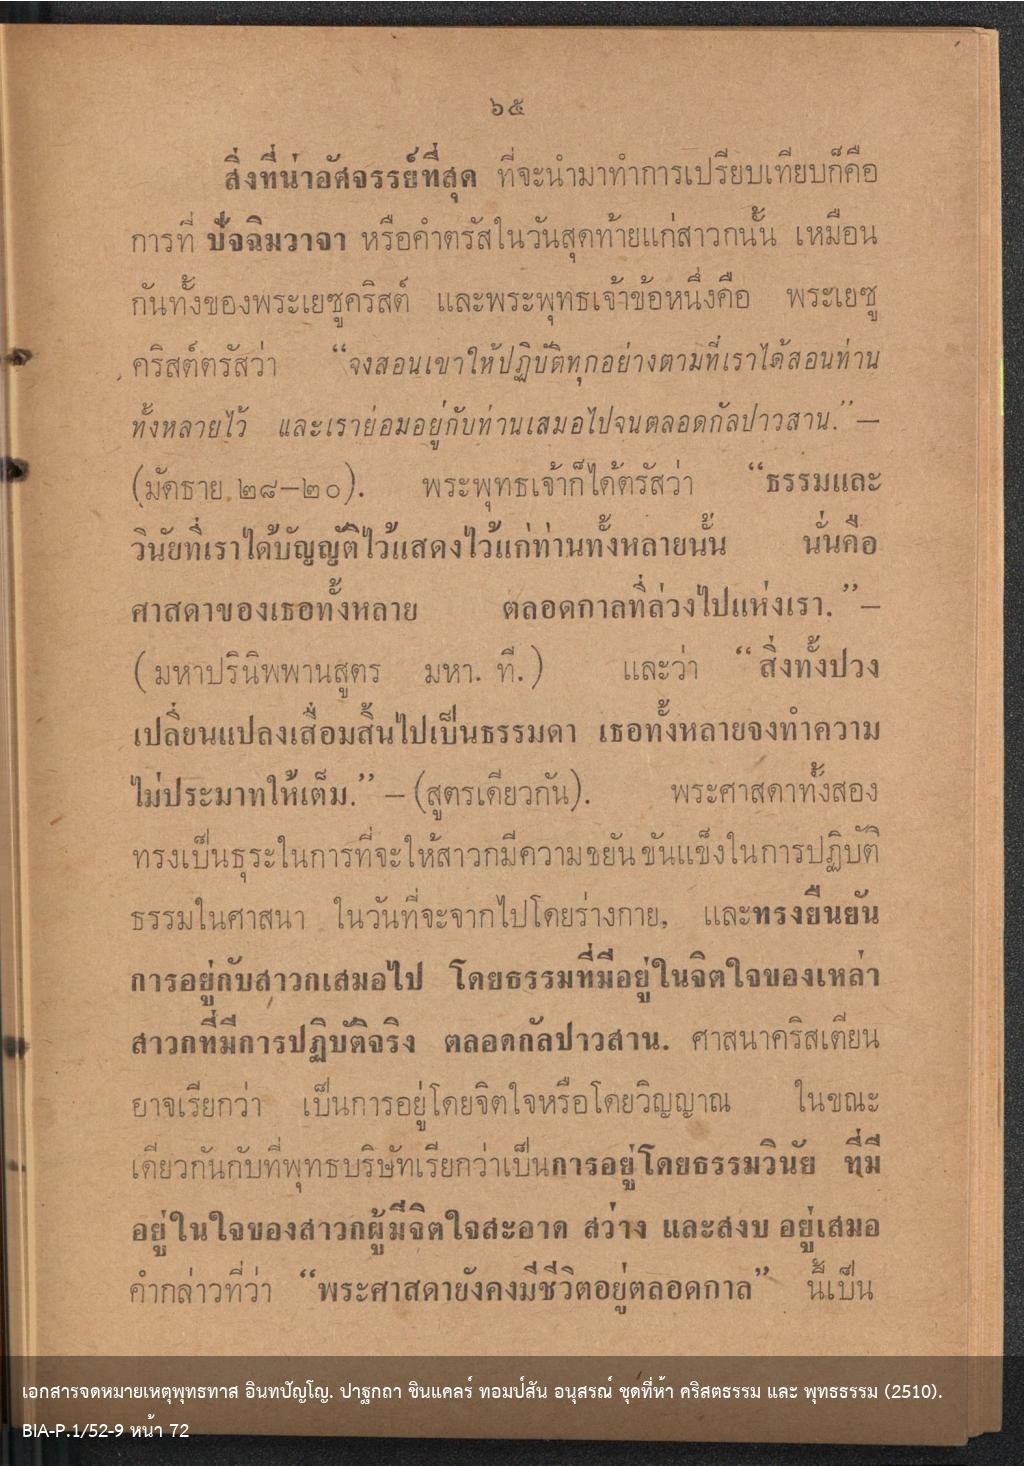 ๖๕
สิ่งที่น่าอัศจรรย์ที่สุด ที่จะนำมาทำการเปรียบเทียบก็คือ
การที่ ปัจฉิมวาจา หรือคำตรัสในวันสุดท้ายแก่สาวกนั้น เหมือน
กันทั้งของพระเยซูคริสต์ และพระพุทธเจ้าข้อหนึ่งคือ พระเยซู
คริสต์ตรัสว่า “จงสอนเขาให้ปฏิบัติทุกอย่างตามที่เราได้สอนท่าน
ทั้งหลายไว้ และเราย่อมอยู่กับท่านเสมอไปจนตลอดกัลปาวสาน.”—
(มัดธาย ๒๘—๒๐). พระพุทธเจ้าก็ได้ตรัสว่า “ธรรมและ
วินัยที่เราได้บัญญัติไว้แสดงไว้แก่ท่านทั้งหลายนั้น นั่นคือ
ศาสดาของเธอทั้งหลาย ตลอดกาลที่ล่วงไปแห่งเรา.”—
(มหาปรินิพพานสูตร มหา. ที.) และว่า “สิ่งทั้งปวง
เปลี่ยนแปลงเสื่อมสิ้นไปเป็นธรรมดา เธอทั้งหลายจงทำความ
ไม่ประมาทให้เต็ม.” — (สูตรเดียวกัน). พระศาสดาทั้งสอง
ทรงเป็นธุระในการที่จะให้สาวกมีความขยันขันแข็งในการปฏิบัติ
ธรรมในศาสนา ในวันที่จะจากไปโดยร่างกาย, และทรงยืนยัน
การอยู่กับสาวกเสมอไป โดยธรรมที่มีอยู่ในจิตใจของเหล่า
สาวกที่มีการปฏิบัติจริง ตลอดกัลปาวสาน. ศาสนาคริสเตียน
อาจเรียกว่า เป็นการอยู่โดยจิตใจหรือโดยวิญญาณ ในขณะ
เดียวกันกับที่พุทธบริษัทเรียกว่าเป็นการอยู่โดยธรรมวินัย ที่มี
อยู่ในใจของสาวกผู้มีจิตใจสะอาด สว่าง และสงบ อยู่เสมอ
คำกล่าวที่ว่า “พระศาสดายังคงมีชีวิตอยู่ตลอดกาล” นี้เป็น
เอกสารจดหมายเหตุพุทธทาส อินทปัญโญ. ปาฐกถา ซินแคลร์ ทอมป์สัน อนุสรณ์ ชุดที่ห้า คริสตธรรม และ พุทธธรรม (2510).
BIA-P.1/52-9 หน้า 72